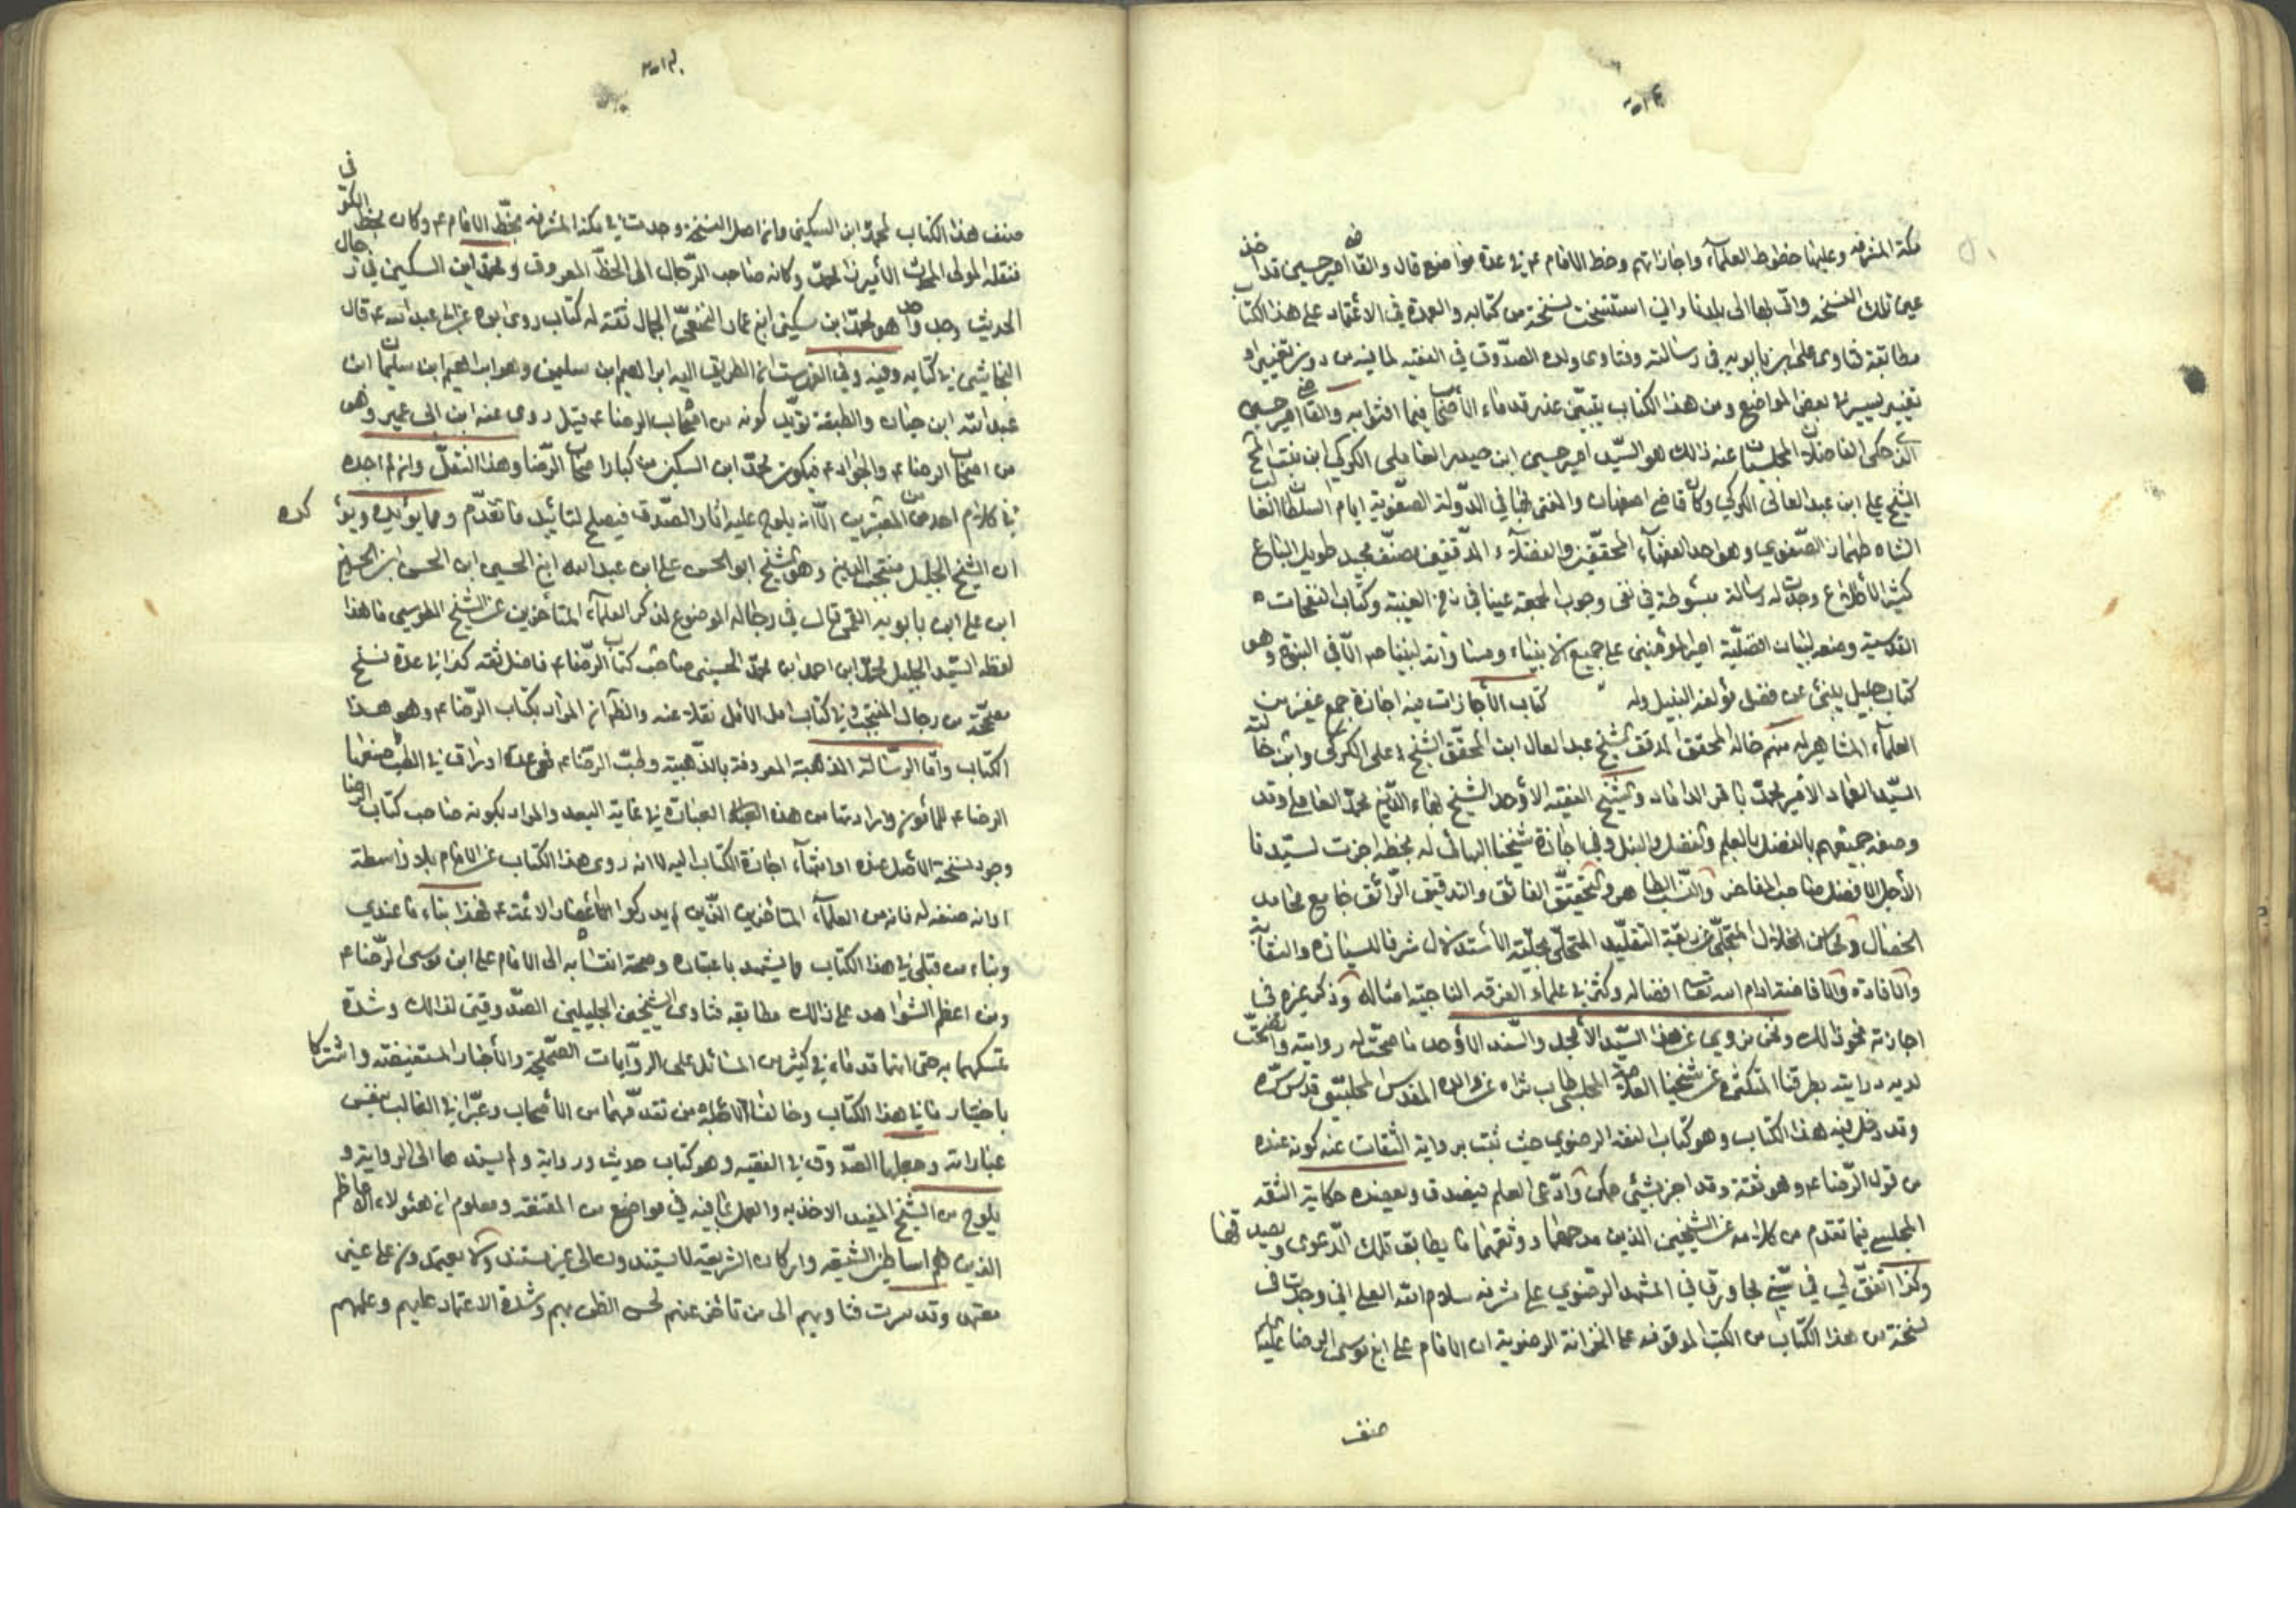 مكة المشرفه وعليها خطوط العلمآء واجازاتهم وخط الامام ع في عدة مواضع قال والقاضى امير حسين قد اخذ
عن تلك النسخه واتى بها الى بلدنا واني استنسخت نسخة من كتابه والعمدة في الاعتماد على هذا الكتاب
مطابقة فتاوى على ابن بابويه في رسالته وفتاوى ولده الصدّوق في الفقيه لما فيه من دون تغيير او
تغيير يسير في بعض المواضع ومن هذا الكتاب يتبيّن عذر قدماء الأصحاب فيما افتوا به والقاضى امير حسين
الذي حكى الفاضلان المجلسيان عنه ذلك هو السيّد امير حسين ابن حيدر العاملى الكركي ابن بنت المحقق
الشيخ علي ابن عبد العالى الكركي وكان قاضى اصفهان والمفتى بها في الدّولة الصفّوية ايام السلطان الغالب
الشاه طهماز الصّفوي وهو احد الفقهآء المحقّقين والفضلآء المدّققين مصنّف مجيد طويل الباع
كثير الأطلاع وجدت له رسالة مبسوطة في نفى وجوب الجمعة عينا في زمن الغيبة وكتاب النفحات
القدسية ومنعه لبيان افضليّة امير المؤمنين على جميع الانبياء ومساواته لنبيناص الّا في النبوة وهو
كتاب جليل ينبئ عن فضل مؤلفه النبيل وله كتاب الأجازات فيه اجازة جمع غفير من
العلمآء المشاهير له منهم خاله المحقق المدقق الشيخ عبد العال ابن المحقّق الشيخ على الكركى وابن خالته
السيّد العماد الامير محمّد باقر الداماد والشيخ الفقيه الأوحد الشيخ بهاء الدّين محمّد العاملي وقد
وصفه جميعهم بالفضل بالعلم والفضل والنبل وفي اجازة شيخنا البهائى له بخطه اجزت لسيّدنا
الأجل الافضل صاحب المفاخر والنّسب الطاهر والتحقيّق الفائق والتدقيق الرّائق جامع محامد
الخصال ومحاسن الخلال المتحلّى عن ربقة التقلّيد المتحلّى بحلّية الأستدلال شرفا للسيادة والنقابة
والأفادة والأفاضة ادام الله تعالى افضاله وكثّر في علماء الفرقه الناجيّه امثاله وذكر غيره في
اجازته نحو ذالك ونحن نروي عن هذا السيّد الأمجد والسّند الأوحد ما صحّت له روايته واتضحّت
لديه درايته بطرقنا المتكثره عن شيخنا العلامة المجلسي طاب ثراه عن والده المقدس المجلسيّ قدس سّره
وقد دخل فيه هذا الكتاب وهو كتاب الفقه الرضوي حيث ثبت برواية الثقات عنه كونه عنده
من قول الرّضاء ع وهو ثقة وقد اخبر بشئ ممكن وادّعى العلم فيصدق ويعضده حكاية الثقه
المجلسي فيما تقدم من كلامه عن الشيخين الذين مدحهما ووثقهما ما يطابق تلك الدّعوى ويصدقها
وكذا اتفقّ لي في سنّي مجاورتي في المشهد الرّضوي على مشرفه سلام الله العلي اني وجدت في
نسخة من هذا الكتاب من الكتب الموقوفه على الخزانة الرضوية ان الامام علي ابن موسى الرضا عليه
صنف
صنف هذا الكتاب لمحمّد ابن السكين وان اصل النسخة وجدت في مكة المشرفه بخطّ الامام ع وكان بخط الكوفى
فنقله المولى المحدث الأميرزا محمّد وكانه صاحب الرّجال الى الخطّ المعروف ومحمّد ابن السكين في رجال
الحديث رجل واحد هو محمّد ابن سكين ابن عمار النخعيّ الجمال ثقة له كتاب روى ابوه عن ابي عبد الله ع قال
النجاشي في كتابه وفيه وفي الفهرست ان الطريق اليه ابراهيم ابن سليمن وهو ابراهيم ابن سليمان ابن
عبد الله ابن حيان والطبقة تؤيّد كونه من اصحاب الرضاء ع قيل روى عنه ابن ابى عمير وهو
من اصحاب الرضاء ع والجواد ع فيكون محمّد ابن السكين من كبار اصحاب الرّضا وهذا النقلّ وان لم اجده
في كلام احد من المعتبرين الّا انه يلوح عليه اثار الصّدق فيصلح لتأييد ما تقدّم ومما يؤيده ويؤكده
ان الشيخ الجليل منتجب الدين وهو الشيخ ابو الحسن علي ابن عبد الله ابن الحسين ابن الحسن ابن الحسين
ابن علي ابن بابويه القمّي قال في رجاله الموضوع لذكر العلمآء المتأخرين عن الشيخ الطوسي ما هذا
لفظه السيّد الجليل محمّد ابن احمد ابن محمّد الحسيني صاحب كتاب الرّضاء ع فاضل ثقه كذا في عدة نسخ
مصحّحة من رجال المنتجب وفي كتاب امل الأمل نقلا عنه والظّ ان المراد بكتاب الرّضاء ع وهو هذا
الكتاب وامّا الرسّالة المذهبة المعروفة بالذّهبيّة وطبّ الرضّاء ع فهى عدة اوراق في الطبّ صنفها
الرضاء ع للمأمون وارادتها من هذه العبارة في غاية البعد والمراد بكونه صاحب كتاب الرضا
وجود نسخة الأصل عنده او انتهآء اجازة الكتاب اليه لا انه روى هذا الكتاب عن الامام بلا واسطة
او انه صنفه له فانه من العلمآء المتأخرين الذّين لم يدركوا اعصار الأئمّة ع فهذا بناء ما عندي
وبناء من قبلي في هذا الكتاب مما يشهد باعتباره وصحة انتسابه الى الامام على ابن موسى الرّضاء ع
ومن اعظم الشواهد على ذالك مطابقه فتاوى الشيخين الجليلين الصّدوقين لذالك وشدّة
تمسكهما به حتى انهما قدماه في كثير من المسائل على الروّايات الصّحيحة والأخبار المستفيضه واشتركا
باختيار ما في هذا الكتاب وخالفا لأجله من تقدّمهما من الأصحاب وعبّرا في الغالب بنفس
عباراته وجعلها الصّدوق في الفقيه وهو كتاب حديث ورواية ولم يسندها الى الرواية و
يلوح من الشيخ المفيد الاخذ به والعمل بما فيه في مواضع من المقنعه ومعلوم ان هئولاء الاعاظم
الذين هم اساطين الشيعه واركان الشريعة لا يستندون الى غير مستند ولا يعتمدون على غير
معتمد وقد سرت فتاويهم الى من تاخر عنهم لحسن الظن بهم وشدة الاعتماد عليهم وعلمهم